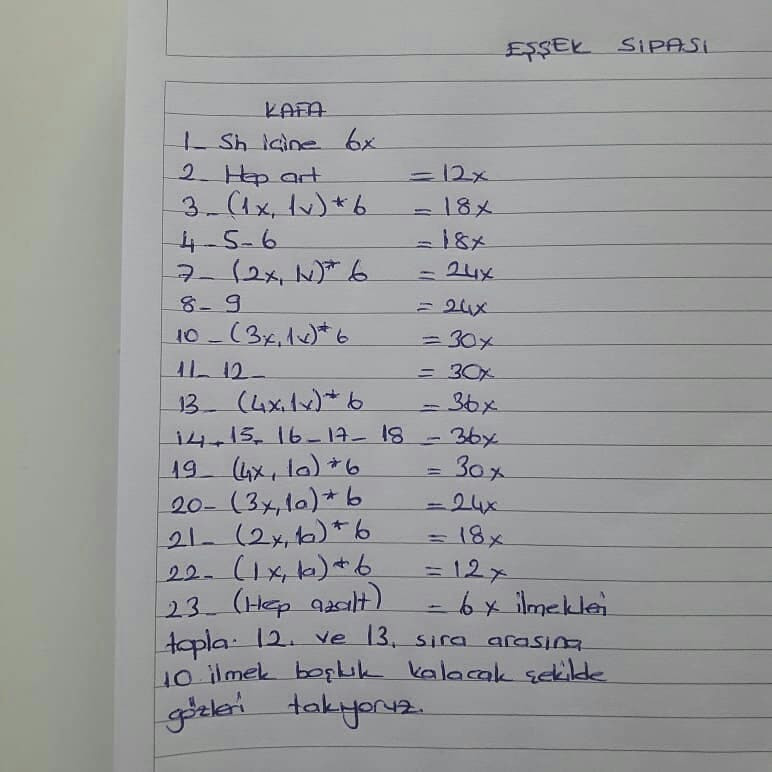 EŞŞEK SIPASI
KAFA
1_ Sh içine 6x
2_ Hep art = 12x
3_ (1x, 1v)*6 = 18x
4_5_6 = 18x
7_ (2x, 1v)* 6 = 24x
8_ 9 = 24x
10_ (3x, 1v)*6 = 30x
11_ 12_ = 30x
13_ (4x, 1v)* 6 = 36x
14_ 15_ 16_17_ 18 = 36x
19_ (4x, 1a)*6 = 30x
20_ (3x, 1a)*6 = 24x
21_ (2x, 1a)* 6 = 18x
22_ (1x, 1a)*6 = 12x
23_ (Hep azalt) = 6x ilmekleri
topla. 12. ve 13. sıra arasına
10 ilmek boşluk kalacak şekilde
gözleri takıyoruz.